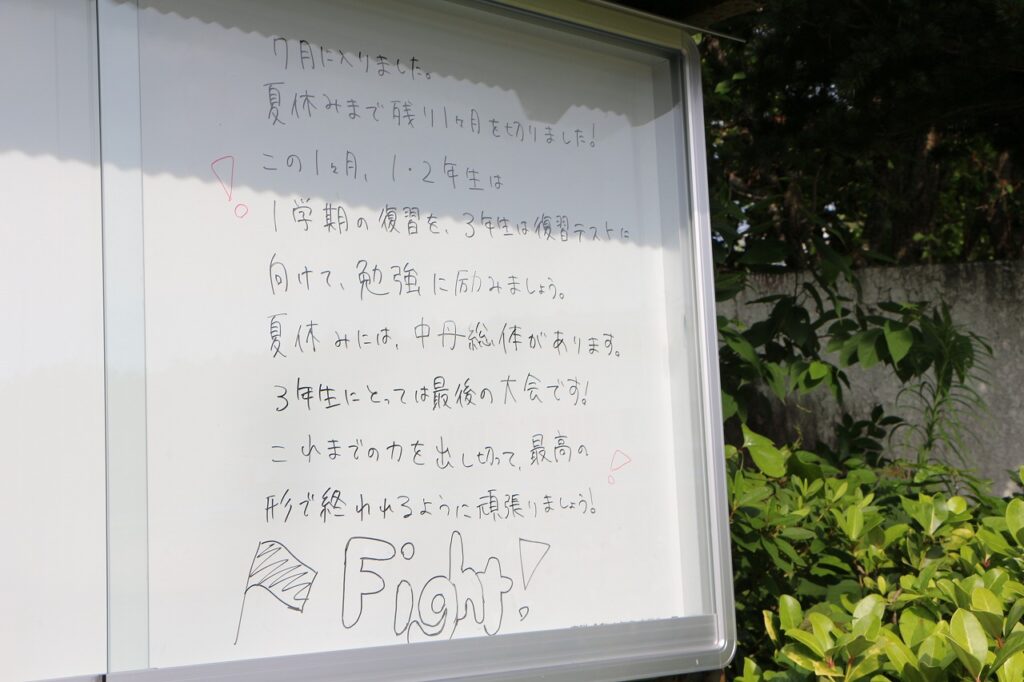 7月に入りました。
夏休みまで残り1ヶ月を切りました!
この1ヶ月、1・2年生は
1学期の復習を、3年生は復習テストに
向けて、勉強に励みましょう。
夏休みには、中丹総体があります。
3年生にとっては最後の大会です!
これまでの力を出し切って、最高の
形で終われるように頑張りましょう!
Fight!